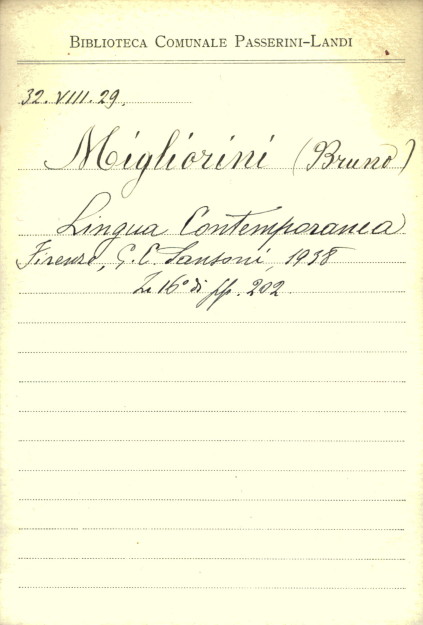 BIBLIOTECA COMUNALE PASSERINI-LANDI
32. VIII. 29.
Migliorini (Bruno)
Lingua Contemporanea
Firenze, G. C. Sansoni, 1938
In 16° di pp. 202.